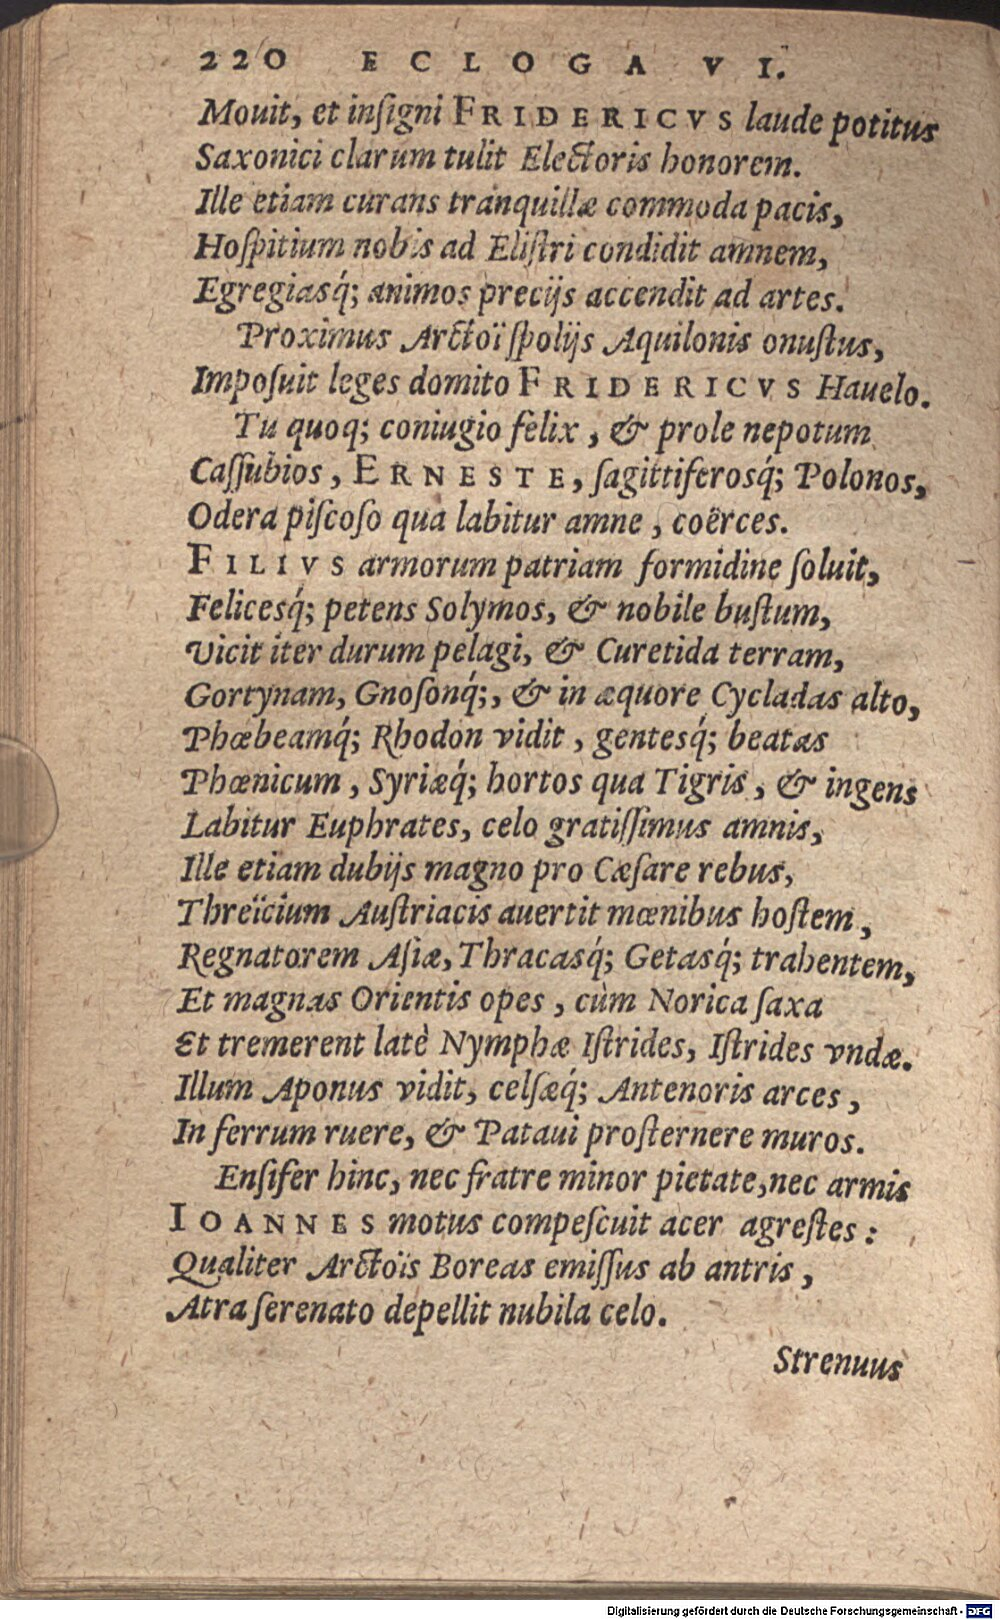 220 ECLOGA VI.
Mouit, et inſigni FRIDERICVS laude potitus
Saxonici clarum tulit Electoris honorem.
Ille etiam curans tranquillæ commoda pacis,
Hoſpitium nobis ad Eliſtri condidit amnem,
Egregiasq́; animos precijs accendit ad artes.
Proximus Arctoï ſpolijs Aquilonis onuſtus,
Impoſuit leges domito FRIDERICVS Hauelo.
Tu quoq; coniugio felix, & prole nepotum
Caſſubios, ERNESTE, ſagittiferosq́; Polonos,
Odera piſcoſo qua labitur amne, coërces.
FILIVS armorum patriam formidine ſoluit,
Felicesq́; petens Solymos, & nobile buſtum,
Vicit iter durum pelagi, & Curetida terram,
Gortynam, Gnoſonq́;, & in æquore Cycladas alto,
Phœbeamq́; Rhodon vidit, gentesq́; beatas
Phœnicum, Syriæq́; hortos qua Tigris, & ingens
Labitur Euphrates, celo gratiſſimus amnis,
Ille etiam dubijs magno pro Cæſare rebus,
Threïcium Auſtriacis auertit mœnibus hoſtem,
Regnatorem Aſiæ, Thracasq́; Getasq́; trahentem,
Et magnas Orientis opes, cùm Norica ſaxa
Et tremerent latè Nymphæ Iſtrides, Iſtrides vndæ.
Illum Aponus vidit, celſæq́; Antenoris arces,
In ferrum ruere, & Pataui proſternere muros.
Enſifer hinc, nec fratre minor pietate, nec armis
IOANNES motus compeſcuit acer agreſtes:
Qualiter Arctoïs Boreas emiſſus ab antris,
Atra ſerenato depellit nubila celo.
Strenuus
Digitalisierung gefördert durch die Deutsche Forschungsgemeinschaft - DFG